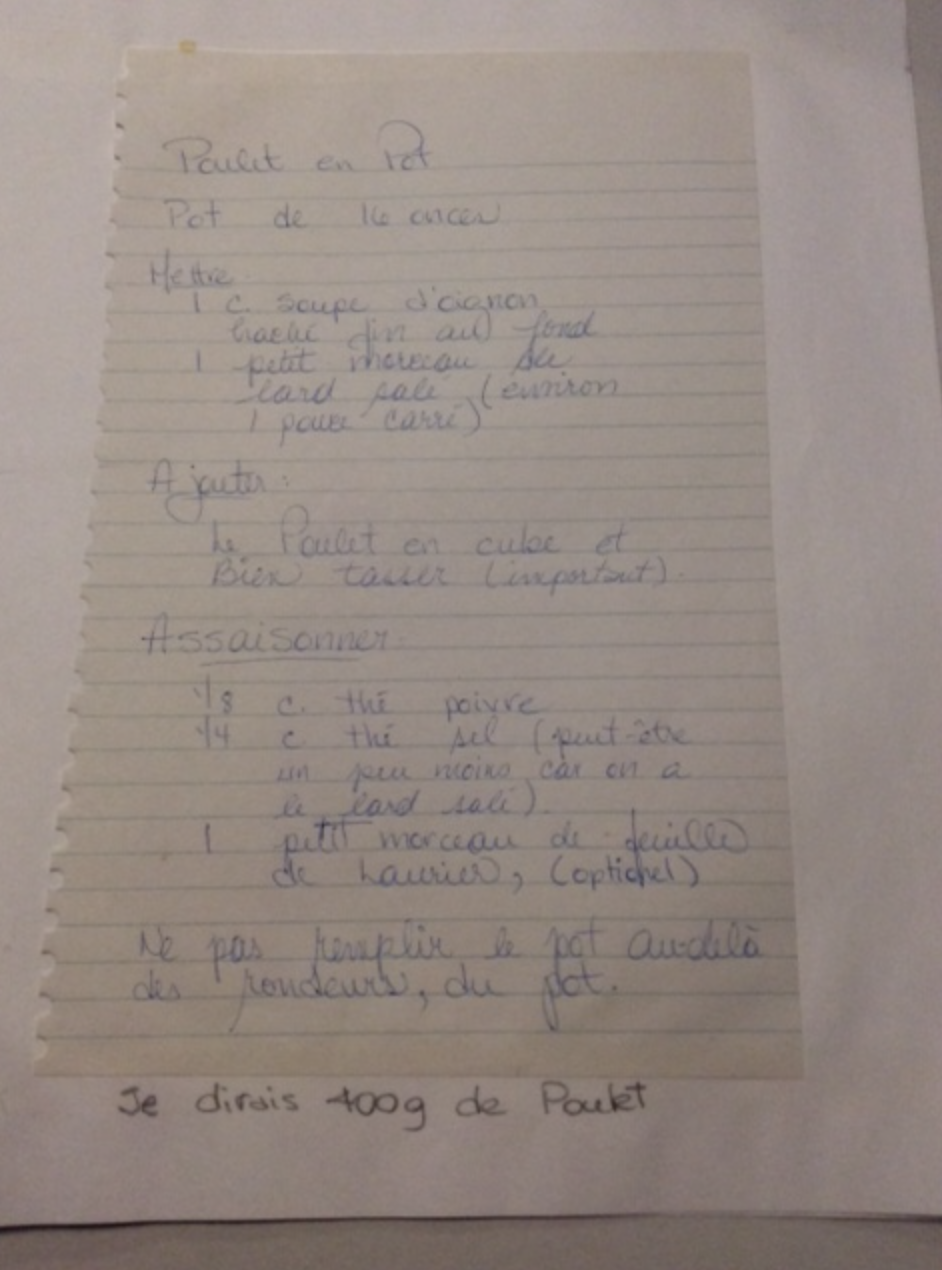 Poulet en Pot
Pot de 16 onces
Mettre
1 c. soupe d'oignon
haché fin au fond
1 petit morceau de
lard salé (environ
1 pouce carré)
Ajouter:
Le Poulet en cube et
Bien tasser (important).
Assaisonner:
1/8 c. thé poivre
1/4 c thé sel (peut-être
un peu moins car on a
le lard salé).
1 petit morceau de feuille
de Laurier, (optionel)
Ne pas remplir le pot au-delà
des rondeurs, du pot.
Je dirais 400g de Poulet